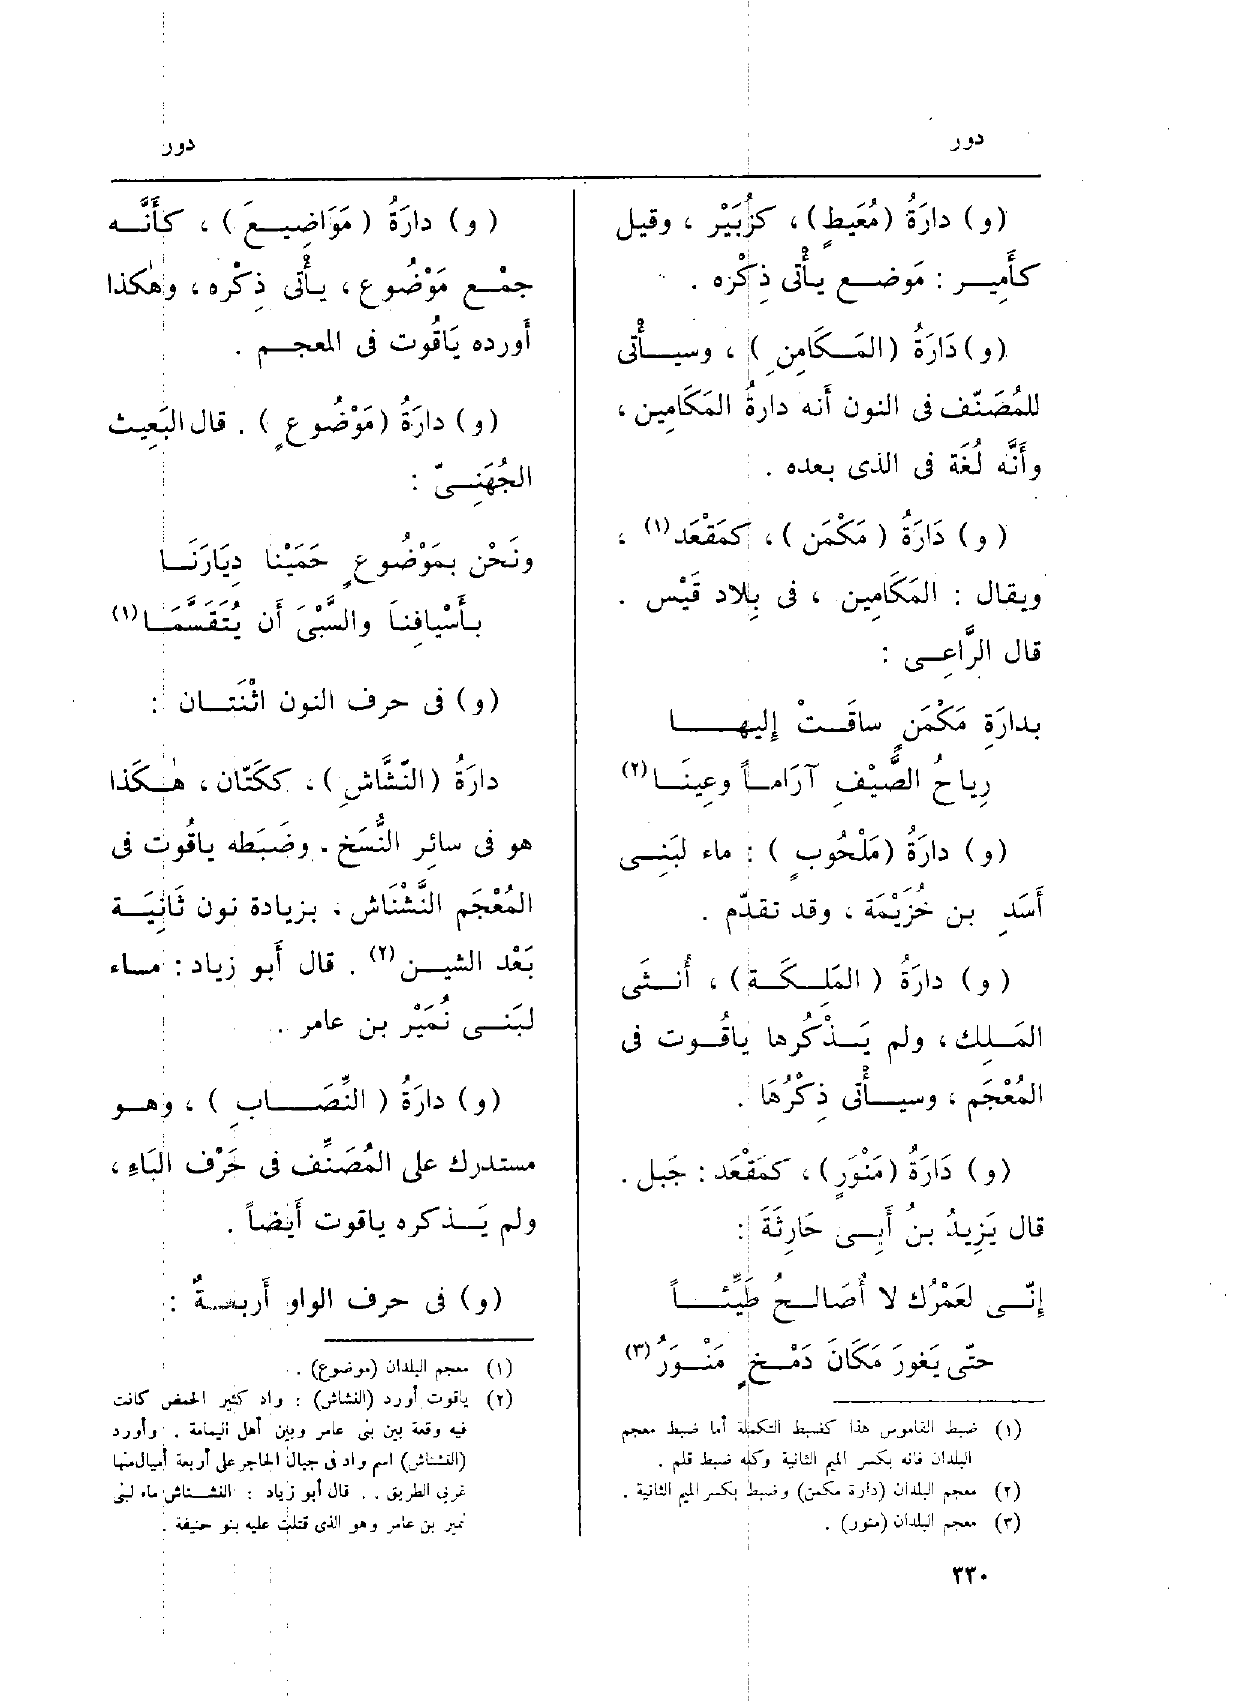 دور
دور
(و) دارَةُ (مُعَيطٍ)، كزُبَيْر ، وقيل
كأَمِيــر : مَوضــع يأْتى ذِكْرُه .
(و) دَارَةُ (المَــكَامِنِ) ، وسيــأْتى
للمُصَنّف فى النون أنه دارةُ المَكَامِين ،
وأَنَّه لُغَة فى الذى بعده .
(و) دَارَةُ (مَكْمَن) ، كمَقْعَد(١) ،
ويقال : المَكَامِين ، فى بِلاد قَيْس .
قال الرَّاعِــى :
بدارَةِ مَكْمَنٍ ساقَــتْ إِليهــــا
رِياحُ الصَّيْفِ آرَامــاً وعِينَــا(٢)
(و) دارَةُ (مَلْحُوبٍ) : ماء لبَنِــى
أَسَدِ بن خُزَيْمَة ، وقد تقدّم .
(و) دارَةُ (المَلِــكَــة) ، أُنــثَى
المَــلِك ، ولم يَــذْكُرها ياقُــوت فى
المُعْجَم ، وسيــأْتى ذِكْرُهَا .
(و) دَارَةُ (مَنْوَرٍ) ، كمَقْعَد : جَبل .
قال يَزِيدُ بنُ أَبِــى حَارِثَةَ :
إِنّــى لعَمْرُك لا أُصَالــحُ طَيِّئــاً
حتّى يَغورَ مَكَانَ دَمْــخٍ مَنْــوَرُ(٣)
(١) ضبط القاموس هذا كضبط التكملة أما ضبط معجم
البلدان فانه بكسر الميم الثانية وكله ضبط قلم .
(٢) معجم البلدان (دارة مكمن) وضبط بكسر الميم الثانية .
(٣) معجم البلدان (منور) .
(و) دارَةُ (مَوَاضِيــعَ) ، كأَنَّــه
جمْــع مَوْضُوع ، يــأْتى ذِكْرُه ، وهٰكذا
أورده يَاقُوت فى المعجــم .
(و) دارَةُ (مَوْضُوعٍ) . قال البَعِيث
الجُهَنِــىّ :
ونَحْن بمَوْضُوعٍ حَمَيْنا دِيَارَنَــا
بأَسْيافِنَا والسَّبْىَ أن يُتَقَسَّمَــا(١)
(و) فى حرف النون اثْنَتــان :
دارَةُ (النّشَّاشِ) ، ككَتّان ، هٰــكَذا
هو فى سائِر النُّسَخ . وضَبَطه ياقُوت فى
المُعْجَم النَّشْنَاش ، بزيادة نون ثَانِيَــة
بَعْد الشيــن(٢) . قال أَبو زياد : مــاء
لبَنــى نُمَيْر بن عامر .
(و) دارَةُ (النِّصَــــابِ) ، وهــو
مستدرك على المُصَنِّف فى حَرْف البَاءِ ،
ولم يَــذكره ياقوت أَيضاً .
(و) فى حرف الواو أَربعــةٌ :
(١) معجم البلدان (موضوع) .
(٢) ياقوت أورد (النشاش) : واد كثير الحمض كانت
فيه وقعة بين بنى عامر وبين أهل اليمامة . وأورد
(النشناش) اسم واد فى جبال الحاجر على أربعة أميال منها
غربى الطريق . . قال أبو زياد : النشــناش ماء لبنى
نمير بن عامر وهو الذى قتلت عليه بنو حنيفة .
٣٣٠